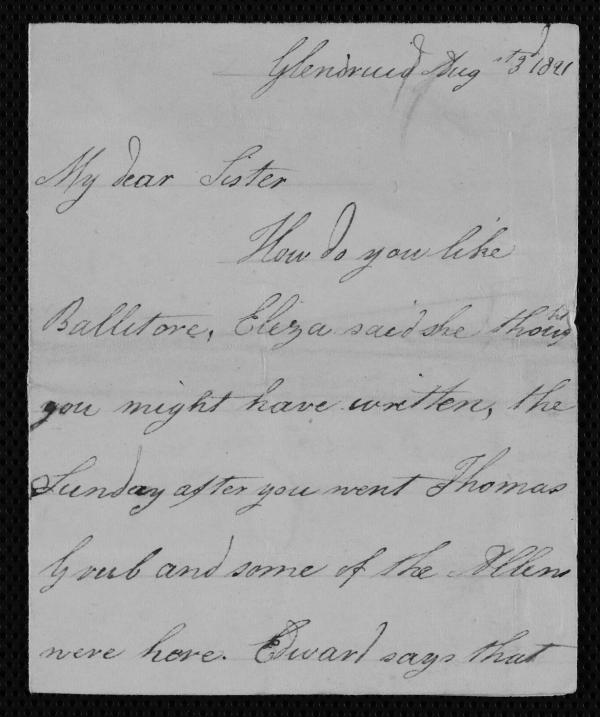 Glendruid Augst 3d 1821
My dear Sister
How do you like
Ballitore, Eliza said she thought
you might have written, the
Sunday after you went Thomas
Grub and some of the Allens
were here. Edward says that